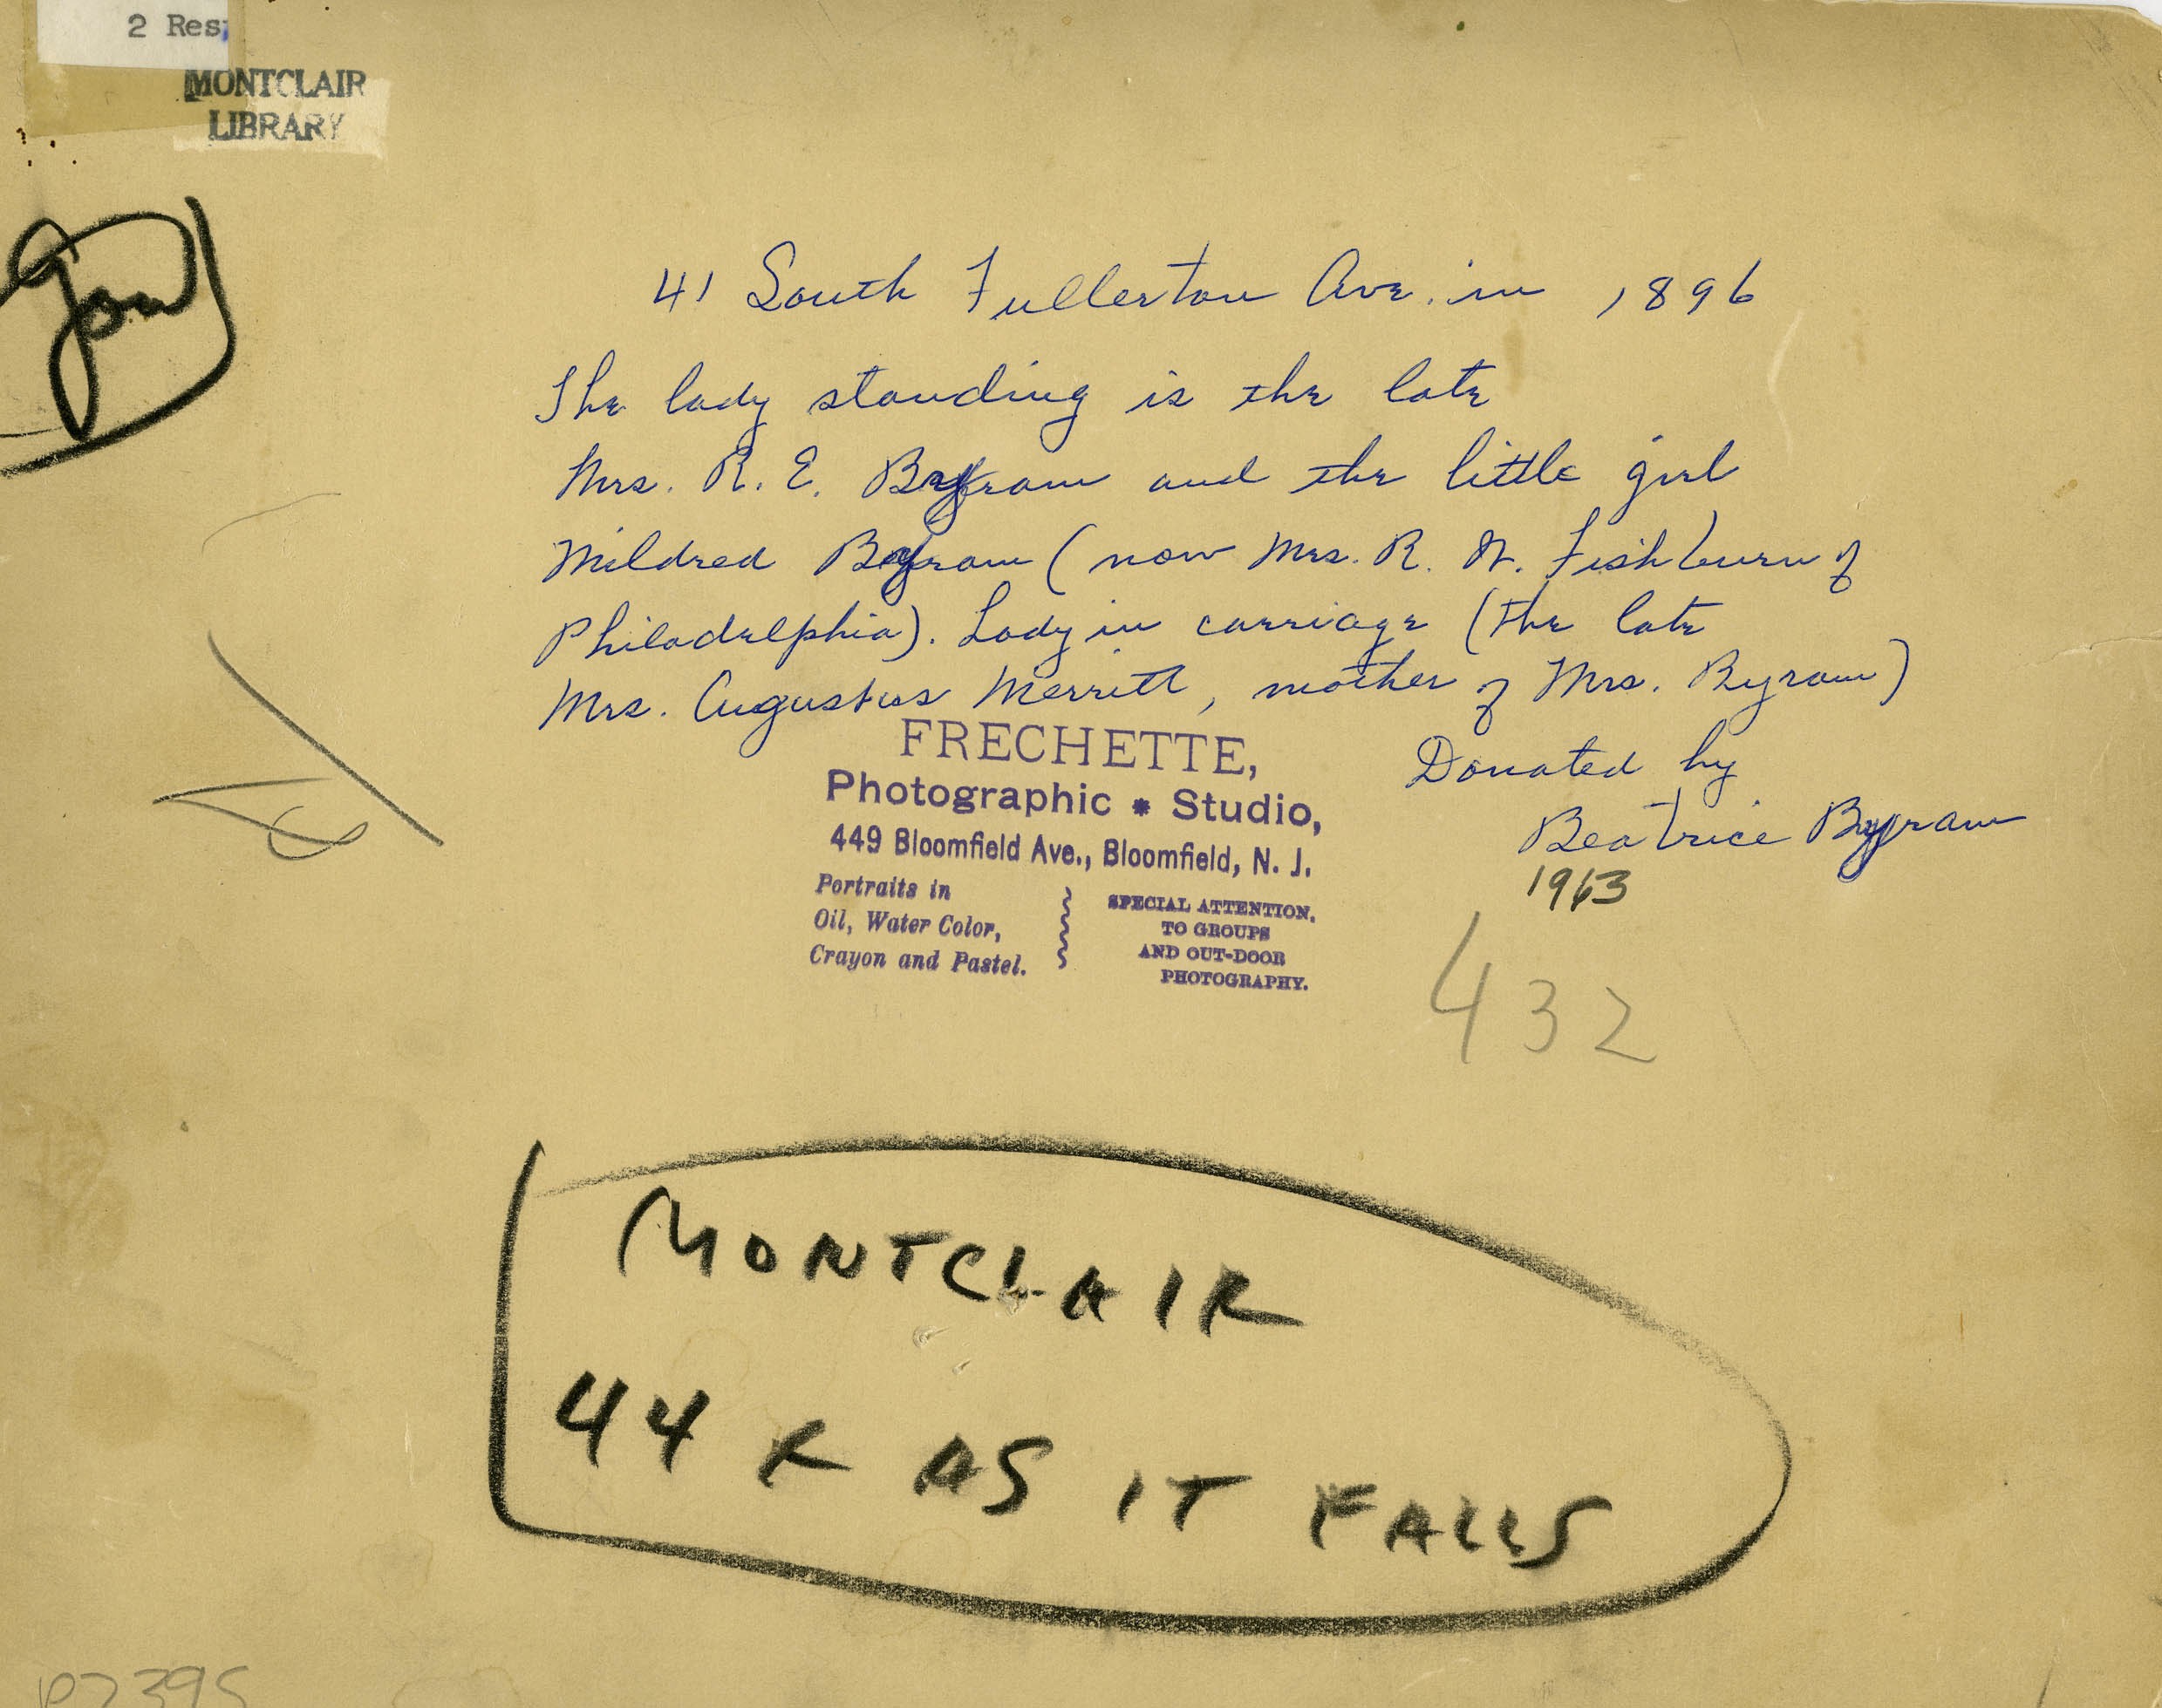 2 Res
MONTCLAIR
LIBRARY
41 South Fullerton Ave. in 1896
The lady standing is the late
Mrs. R. E. Byram and the little girl
Mildred Byram (now Mrs. R. W. Fishburn of
Philadelphia). Lady in carriage (the late
Mrs. Augustus Merritt, mother of Mrs. Byram)
Donated by
Beatrice Byram
1963
FRECHETTE,
Photographic * Studio,
449 Bloomfield Ave., Bloomfield, N. J.
Portraits in
Oil, Water Color,
Crayon and Pastel.
SPECIAL ATTENTION,
TO GROUPS
AND OUT-DOOR
PHOTOGRAPHY.
432
MONTCLAIR
44 R AS IT FALLS